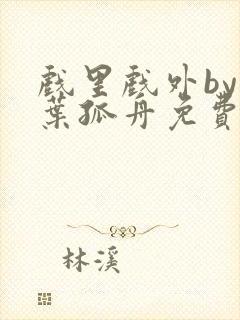 戲里戲外by
葉孤舟免費
林溪